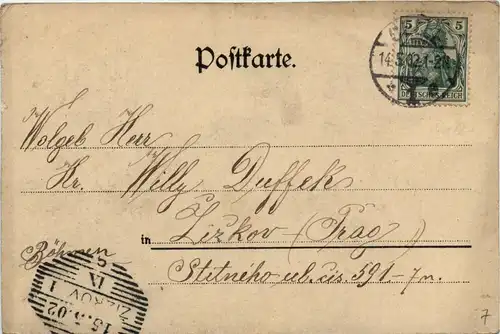 5 5
DEUTSCHES REICH
14.5.02.1-2N
Postkarte.
Wolgeb. Herr
Hr. Willy Duffek
in Zizkov - (Prag)
Böhmen
Stitneho ul. čis. 591-7n.
ŽIŽKOV 1
15.5.02
IX
7